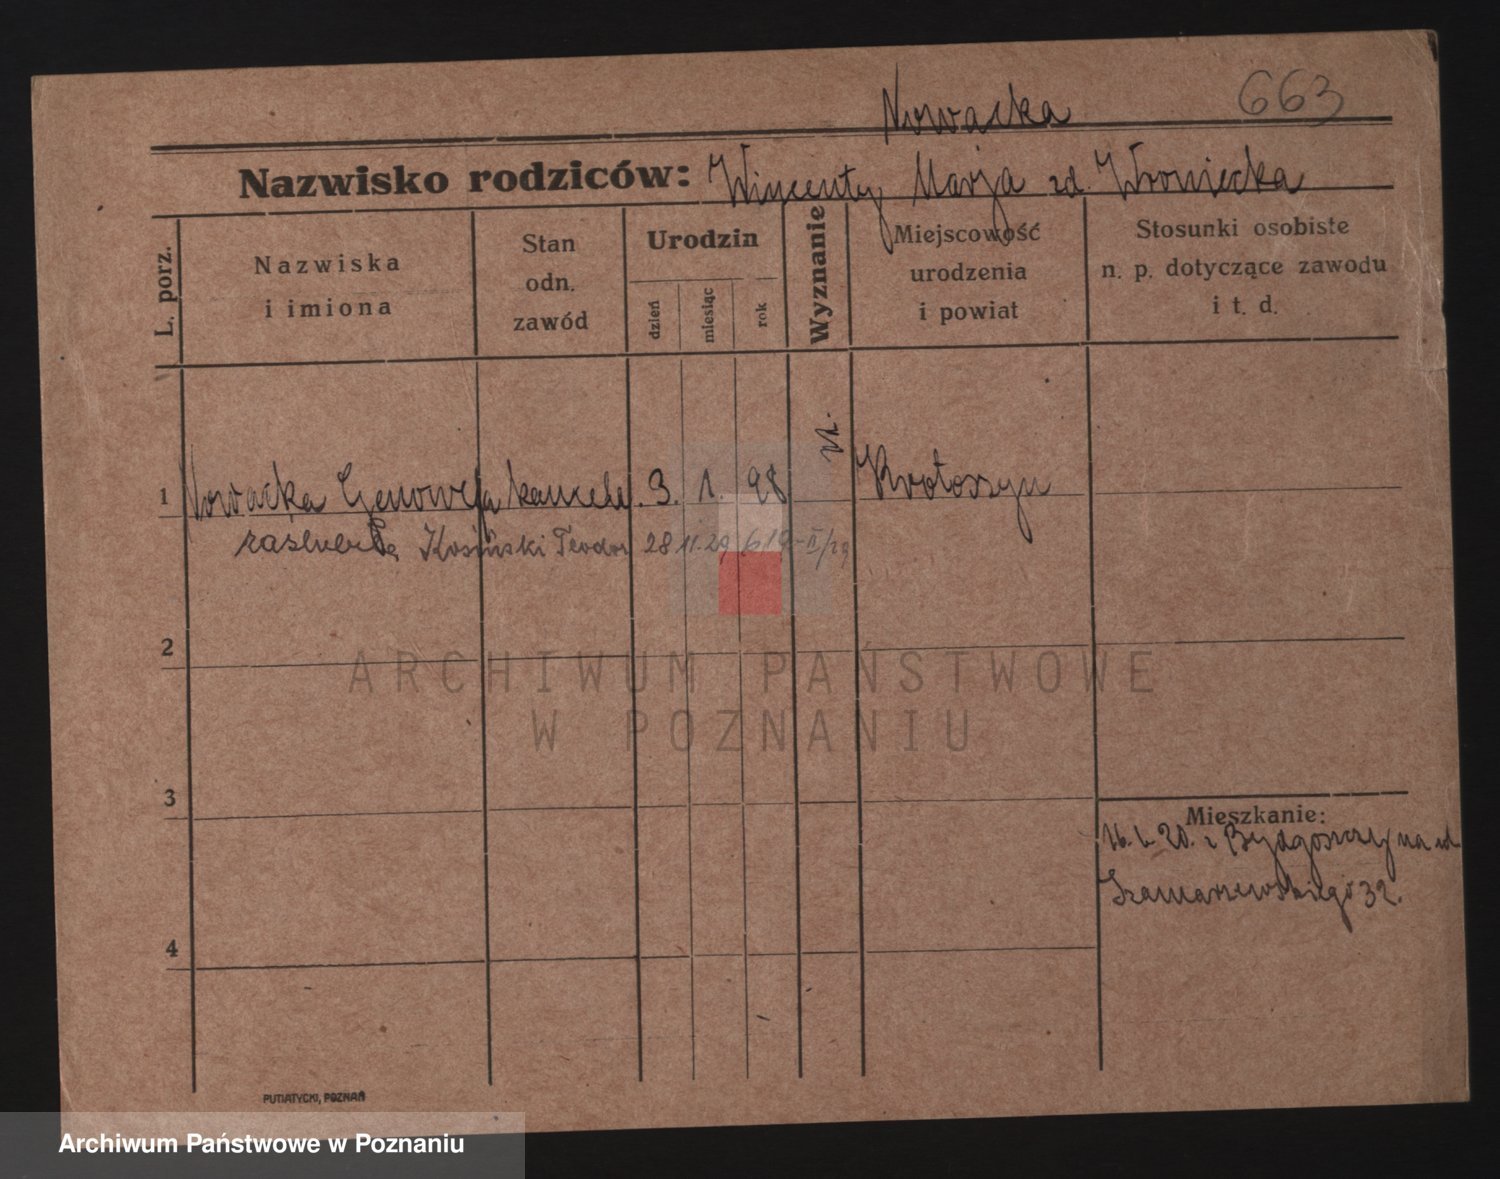 Nowacka 663
Nazwisko rodziców: Wincenty, Marja zd. Wroniecka
L. porz.
Nazwiska
i imiona
Stan
odn.
zawód
Urodzin
dzień
miesiąc
rok
Wyznanie
Miejscowość
urodzenia
i powiat
Stosunki osobiste
n. p. dotyczące zawodu
i t. d.
1 Nowacka Genowefa 3. 1. 98 Krotoszyn
Kosiński Teodor 28 11. 29
2
ARCHIWUM PAŃSTWOWE
W POZNANIU
3
Mieszkanie:
20. z Bydgoszczy na
Szamarzewskiego 32.
4
PUTIATYCKI, POZNAŃ
Archiwum Państwowe w Poznaniu